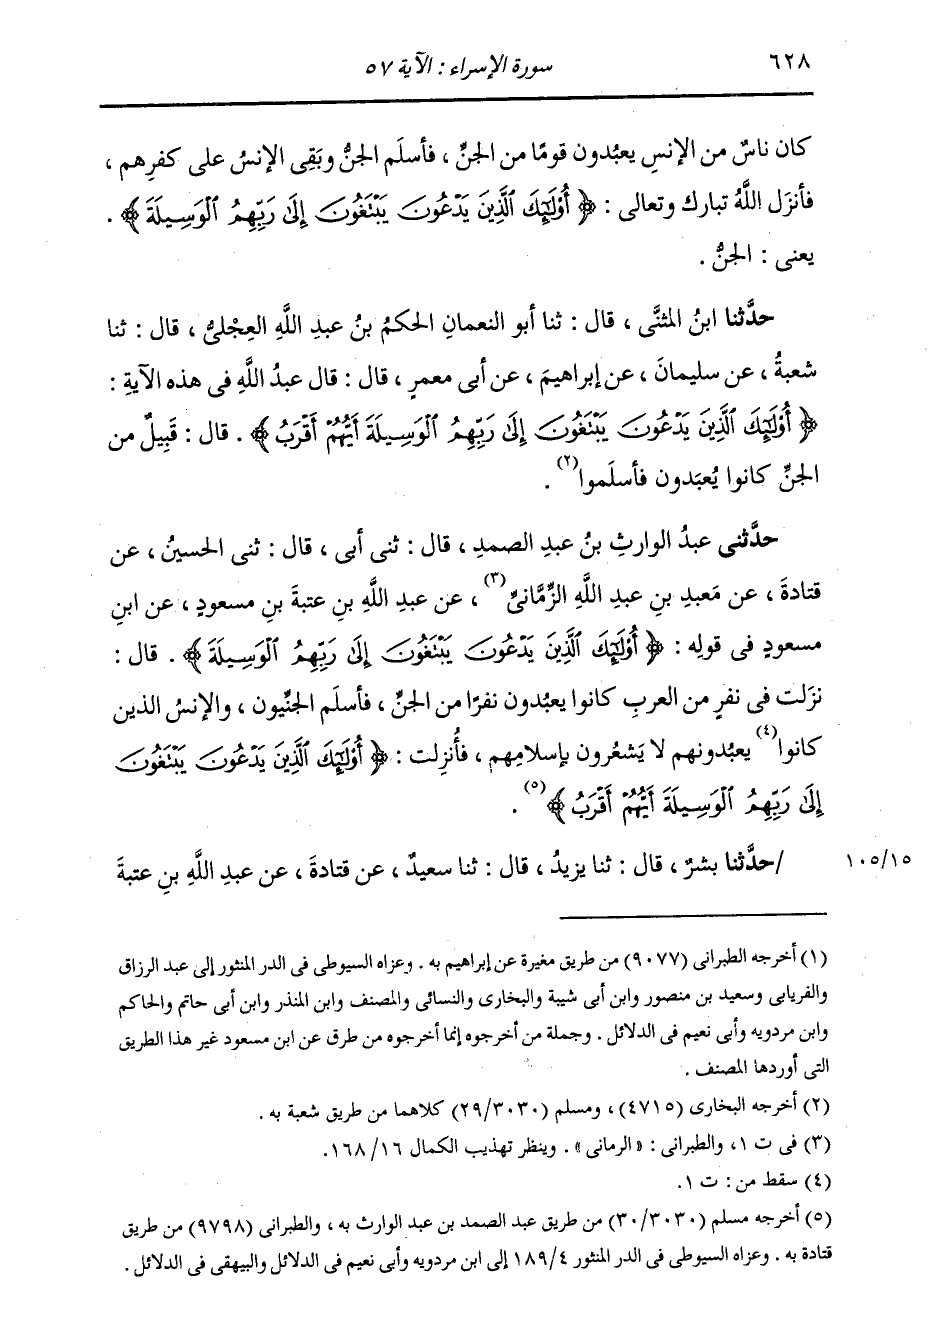 ٦٢٨
سورة الإسراء : الآية ٥٧
كان ناسٌ من الإنسِ يعبُدون قومًا من الجنِّ ، فأسلَم الجنُّ وبَقِى الإنسُ على كفرِهم ،
فأنزَل اللَّهُ تبارك وتعالى : ﴿ أُوْلَٰٓئِكَ ٱلَّذِينَ يَدْعُونَ يَبْتَغُونَ إِلَىٰ رَبِّهِمُ ٱلْوَسِيلَةَ ﴾ .
يعنى : الجنُّ .
حدَّثنا ابنُ المثنَّى ، قال : ثنا أبو النعمانِ الحكمُ بنُ عبدِ اللَّهِ العِجْلىُّ ، قال : ثنا
شعبةُ ، عن سليمانَ ، عن إبراهيمَ ، عن أبى معمرٍ ، قال : قال عبدُ اللَّهِ فى هذه الآيةِ :
﴿ أُوْلَٰٓئِكَ ٱلَّذِينَ يَدْعُونَ يَبْتَغُونَ إِلَىٰ رَبِّهِمُ ٱلْوَسِيلَةَ أَيُّهُمْ أَقْرَبُ ﴾ . قال : قَبِيلٌ من
الجنِّ كانوا يُعبَدون فأسلَموا (٢) .
حدَّثنى عبدُ الوارثِ بنُ عبدِ الصمدِ ، قال : ثنى أبى ، قال : ثنى الحسينُ ، عن
قتادةَ ، عن مَعبدِ بنِ عبدِ اللَّهِ الزِّمَّانىِّ (٣) ، عن عبدِ اللَّهِ بنِ عتبةَ بنِ مسعودٍ ، عن ابنِ
مسعودٍ فى قولِه : ﴿ أُوْلَٰٓئِكَ ٱلَّذِينَ يَدْعُونَ يَبْتَغُونَ إِلَىٰ رَبِّهِمُ ٱلْوَسِيلَةَ ﴾ . قال :
نزَلت فى نفرٍ من العربِ كانوا يعبُدون نفرًا من الجنِّ ، فأسلَم الجنِّيون ، والإنسُ الذين
كانوا (٤) يعبُدونهم لا يَشعُرون بإسلامِهم ، فأُنزِلت : ﴿ أُوْلَٰٓئِكَ ٱلَّذِينَ يَدْعُونَ يَبْتَغُونَ
إِلَىٰ رَبِّهِمُ ٱلْوَسِيلَةَ أَيُّهُمْ أَقْرَبُ ﴾ (٥) .
/حدَّثنا بشرٌ ، قال : ثنا يزيدُ ، قال : ثنا سعيدٌ ، عن قتادةَ ، عن عبدِ اللَّهِ بنِ عتبةَ
١٠٥/١٥
(١) أخرجه الطبرانى (٩٠٧٧) من طريق مغيرة عن إبراهيم به . وعزاه السيوطى فى الدر المنثور إلى عبد الرزاق
والفريابى وسعيد بن منصور وابن أبى شيبة والبخارى والنسائى والمصنف وابن المنذر وابن أبى حاتم والحاكم
وابن مردويه وأبى نعيم فى الدلائل . وجملة من أخرجوه إنما أخرجوه من طرق عن ابن مسعود غير هذا الطريق
التى أوردها المصنف .
(٢) أخرجه البخارى (٤٧١٥) ، ومسلم (٢٩/٣٠٣٠) كلاهما من طريق شعبة به .
(٣) فى ت ١، والطبرانى : « الرمانى » . وينظر تهذيب الكمال ١٦٨/١٦.
(٤) سقط من : ت ١.
(٥) أخرجه مسلم (٣٠/٣٠٣٠) من طريق عبد الصمد بن عبد الوارث به ، والطبرانى (٩٧٩٨) من طريق
قتادة به . وعزاه السيوطى فى الدر المنثور ١٨٩/٤ إلى ابن مردويه وأبى نعيم فى الدلائل والبيهقى فى الدلائل .